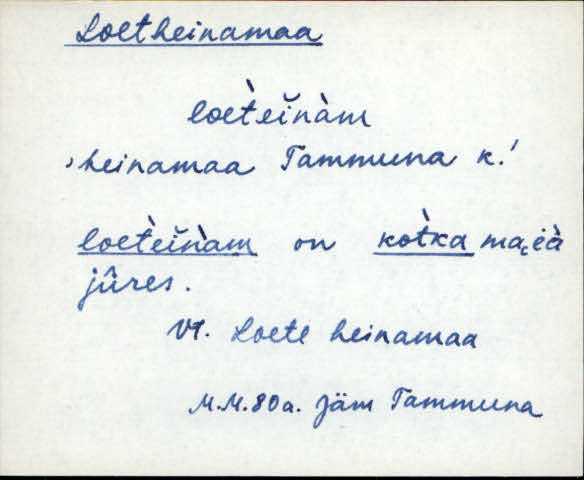 Loetheinamaa
loet̀eĭǹàm
‚heinamaa Tammuna k.'
loet̀eĭǹam on kot̀ka ma̬i̯à
jûres.
Vt. Loete heinamaa
M.M.80a. Jäm Tammuna